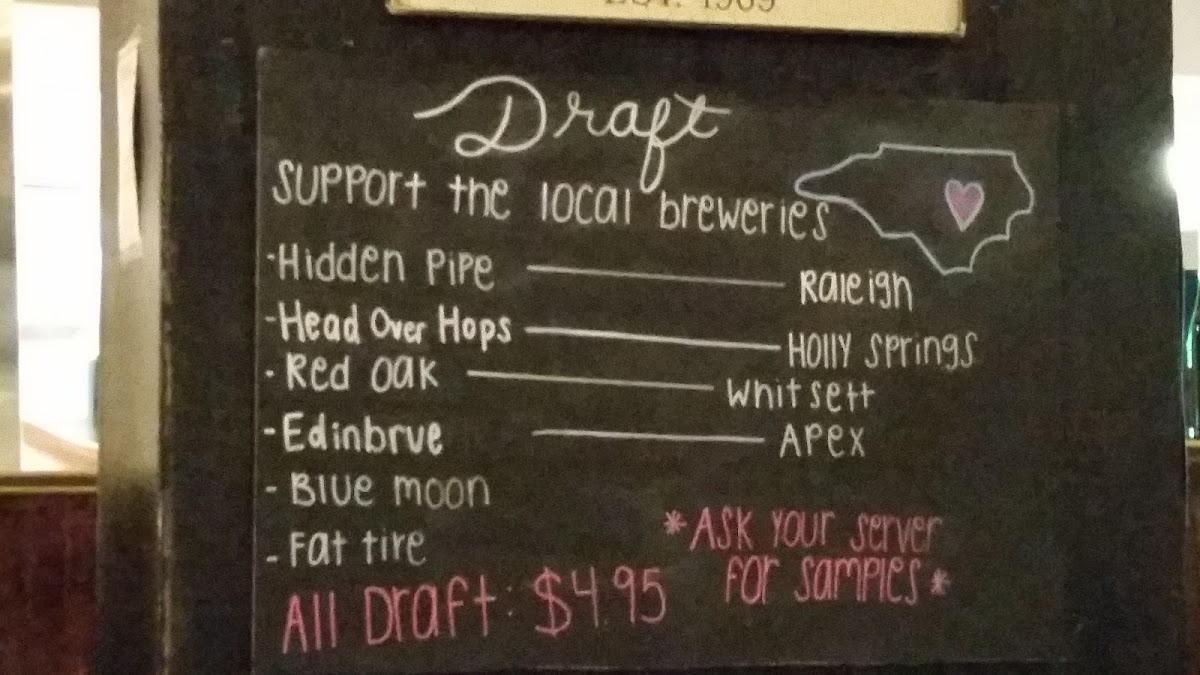 Draft
Support the local breweries
-Hidden Pipe — Raleigh
-Head Over Hops — Holly Springs
-Red Oak — Whitsett
-Edinbrue — Apex
-Blue moon
-Fat tire
*Ask your server
for samples*
All Draft: $4.95